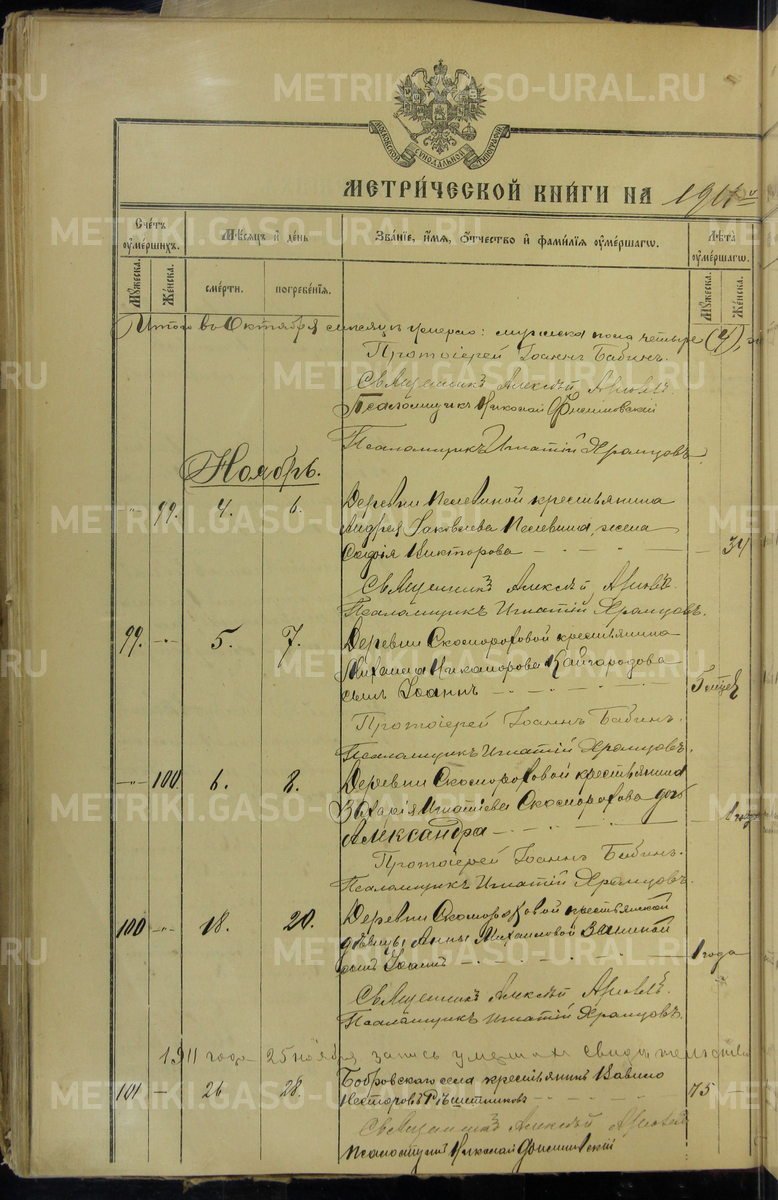 МОСКОВСКОЙ СѴНОДАЛЬНОЙ ТИПОГРАФІИ
МЕТРИ́ЧЕСКОЙ КНИ́ГИ НА 1911
Сче́тъ ᲂу҆ме́ршихъ.
Мѣ́сѧцъ и҆ де́нь
Зва́ніе, и҆́мѧ, ѻ҆́тчество и҆ фами́лїѧ ᲂу҆ме́ршагѡ.
Лѣ́та ᲂу҆ме́ршагѡ.
Мꙋ́жеска.
Же́нска.
сме́рти.
погребе́нїѧ.
Мꙋ́жеска.
Же́нска.
Итого въ Октябрѣ мѣсяцѣ умерло: мужеска пола четыре (4),
Протоіерей Іоаннъ Бабинъ.
Священникъ Алексѣй
Псаломщикъ Николай
Псаломщикъ Игнатій Храмцовъ.
Ноябрь.
" 99. 4. 6. Деревни Пелевиной крестьянина
Андрея Яковлева Пелевина, жена
Софія Викторова 34
Священникъ Алексѣй
Псаломщикъ Игнатій Храмцовъ.
99. 5. 7. Деревни Скомороховой крестьянина
Михаила Никанорова Кайгородова
сынъ Іоаннъ 5 мѣс
Протоіерей Іоаннъ Бабинъ.
Псаломщикъ Игнатій Храмцовъ.
100 6. 8. Деревни Скомороховой крестьянина
Захарія Игнатіева Скоморохова дочь
Александра 1 года
Протоіерей Іоаннъ Бабинъ.
Псаломщикъ Игнатій Храмцовъ.
100 18. 20. Деревни Скомороховой крестьянской
дѣвицы Анны Михаиловой
сынъ Іоаннъ 1 года
Священникъ Алексѣй
Псаломщикъ Игнатій Храмцовъ.
1911 года 25 ноября запись
101 26 28. Бобровскаго села крестьянинъ Вавило
Несторовъ Рѣшетниковъ 75
Священникъ Алексѣй
Псаломщикъ Николай
METRIKI.GASO-URAL.RU